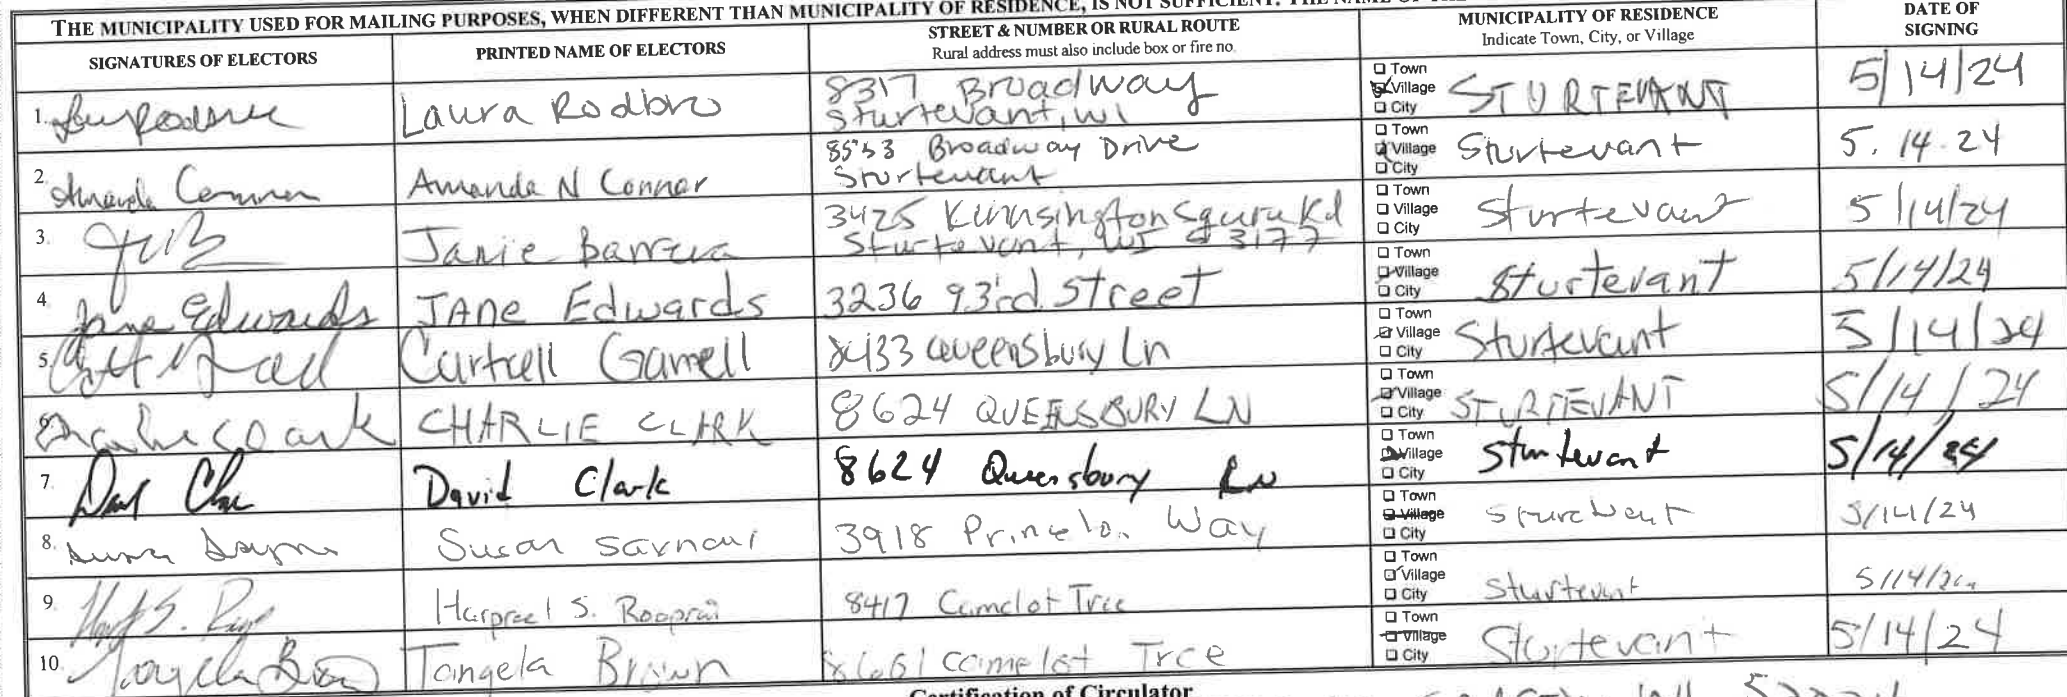 THE MUNICIPALITY USED FOR MAILING PURPOSES, WHEN DIFFERENT THAN MUNICIPALITY OF RESIDENCE, IS NOT SUFFICIENT. THE NAME OF THE
SIGNATURES OF ELECTORS
PRINTED NAME OF ELECTORS
STREET & NUMBER OR RURAL ROUTE
Rural address must also include box or fire no.
MUNICIPALITY OF RESIDENCE
Indicate Town, City, or Village
DATE OF
SIGNING
1. Laura Rodbro 8317 Broadway Sturtevant, WI Town Village City STURTEVANT 5/14/24
2. Amanda Connor Amanda N Connor 8553 Broadway Drive Sturtevant Town Village City Sturtevant 5.14.24
3. Janie Barrera 3425 Sturtevant, WI 53177 Town Village City Sturtevant 5/14/24
4. Jane Edwards JANe Edwards 3236 93rd Street Town Village City Sturtevant 5/14/24
5. 8433 Queensbury Ln Town Village City Sturtevant 5/14/24
6. Charlie Clark CHARLIE CLARK 8624 QUEENSBURY LN Town Village City STURTEVANT 5/14/24
7. David Clark 8624 Queensbury Ln Town Village City Sturtevant 5/14/24
8. Susan 3918 Way Town Village City 5/14/24
9. Harpreet S. Rooprai 8417 Camelot Trce Town Village City Sturtevant 5/14/24
10. Tangela Brown Tangela Brown 8661 Camelot Trce Town Village City Sturtevant 5/14/24
Certification of Circulator